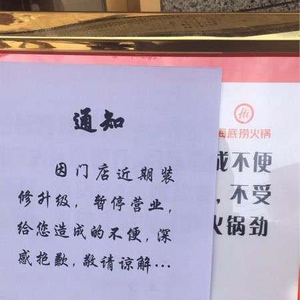 通知
因门店近期装
修升级，暂停营业，
给您造成的不便，深
感抱歉，敬请谅解...
海底捞火锅
成不便
，不受
火锅劲